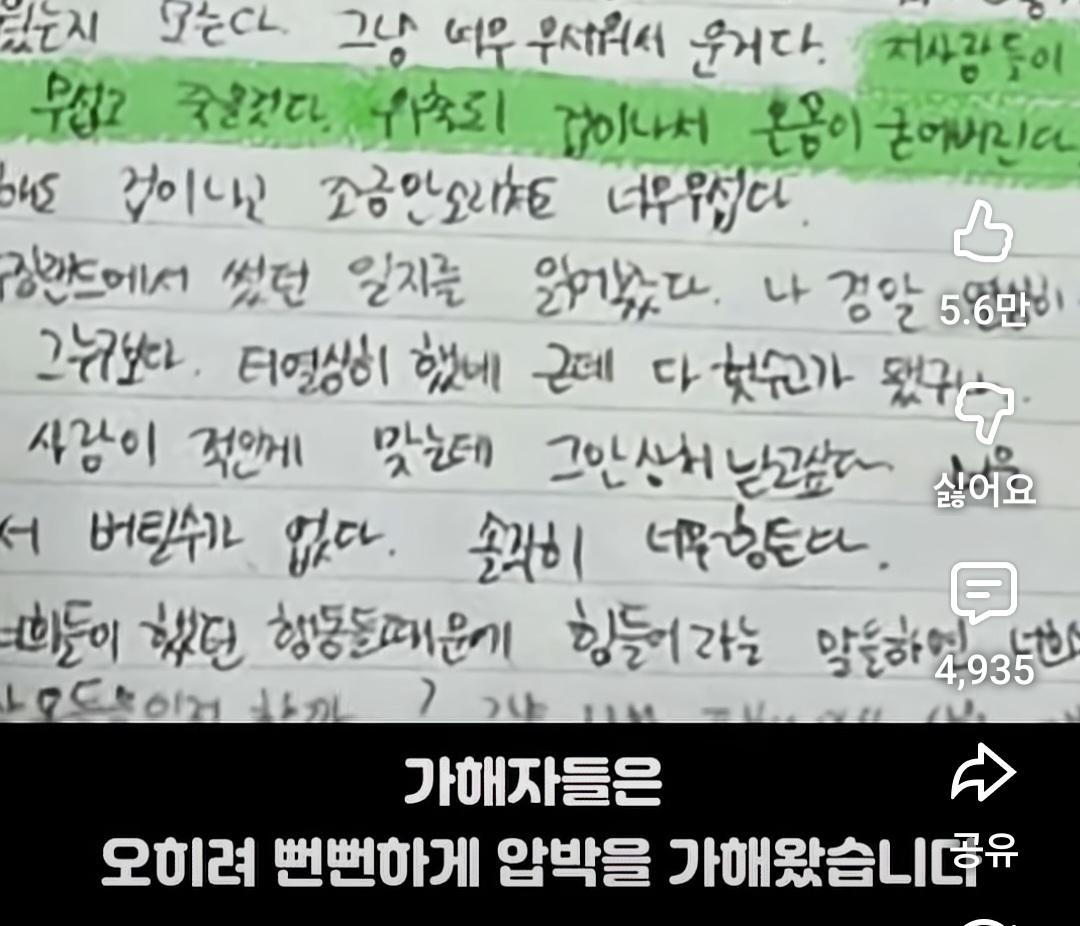 모른다. 그냥 너무 무서워서 운거다. 저사람들이
무섭고 죽을것다. 위축되 겁이나서 온몸이 굳어버린다
해도 겁이나고 조금만소리쳐도 너무무섭다.
에서 썼던 일지를 읽어봤다. 나 정말 열심히
그누구보다. 더열심히 했는데 근데 다 헛수고가 됐구나.
사람이 적안에 맞는데 그만상처 받고싶다
서 버틸수가 없다. 솔직히 너무힘든다.
너희들이 했던 행동들때문에 힘들어라는 말들하면
5.6만
싫어요
4,935
공유
가해자들은
오히려 뻔뻔하게 압박을 가해왔습니다